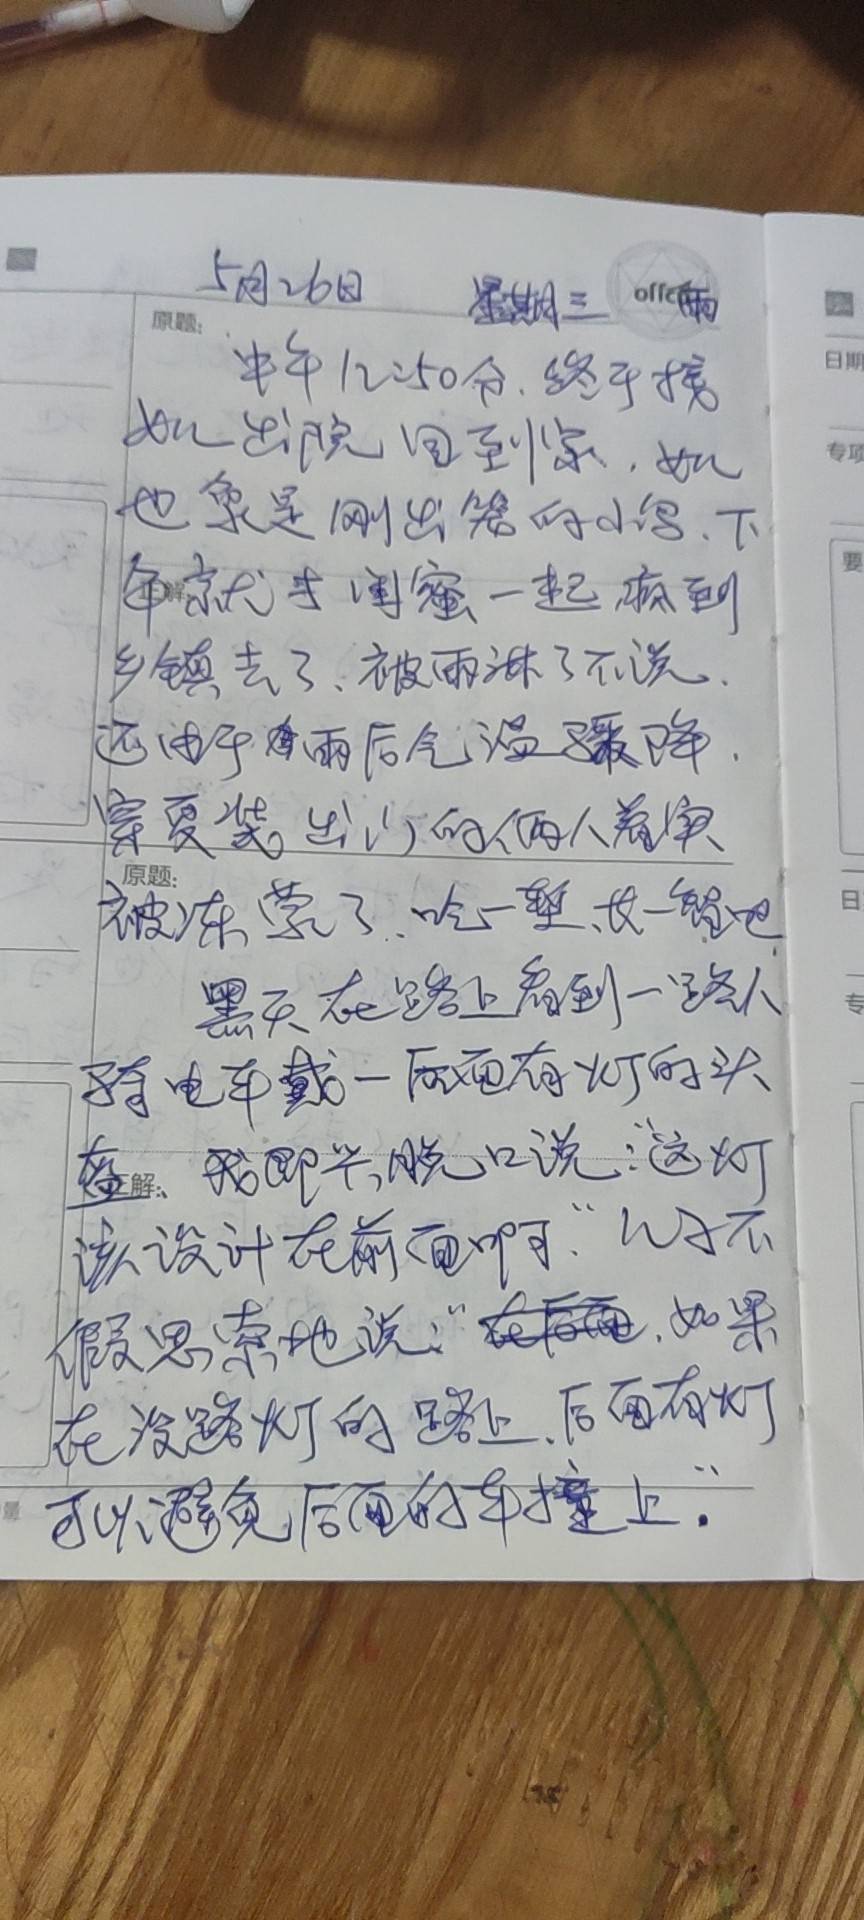 5月26日 星期三 雨
offer
原题:
中午12:50分.终于接
如儿出院回到家,如儿
也象是刚出笼的小鸟、下
午就与闺蜜一起疯到
乡镇去了、被雨淋了不说、
还由于雨后气温骤降.
穿夏装出门的俩人着实
原题:
被冻蒙了、吃一堑、长一智吧
黑天在路上看到一路人
骑电车戴一后面有灯的头
盔、我即兴脱口说:“这灯
正解:
该设计在前面啊”儿子不
假思索地说:“如果
在没路灯的路上、后面有灯
可以避免后面的车撞上”.
日期
专项
要
日
专